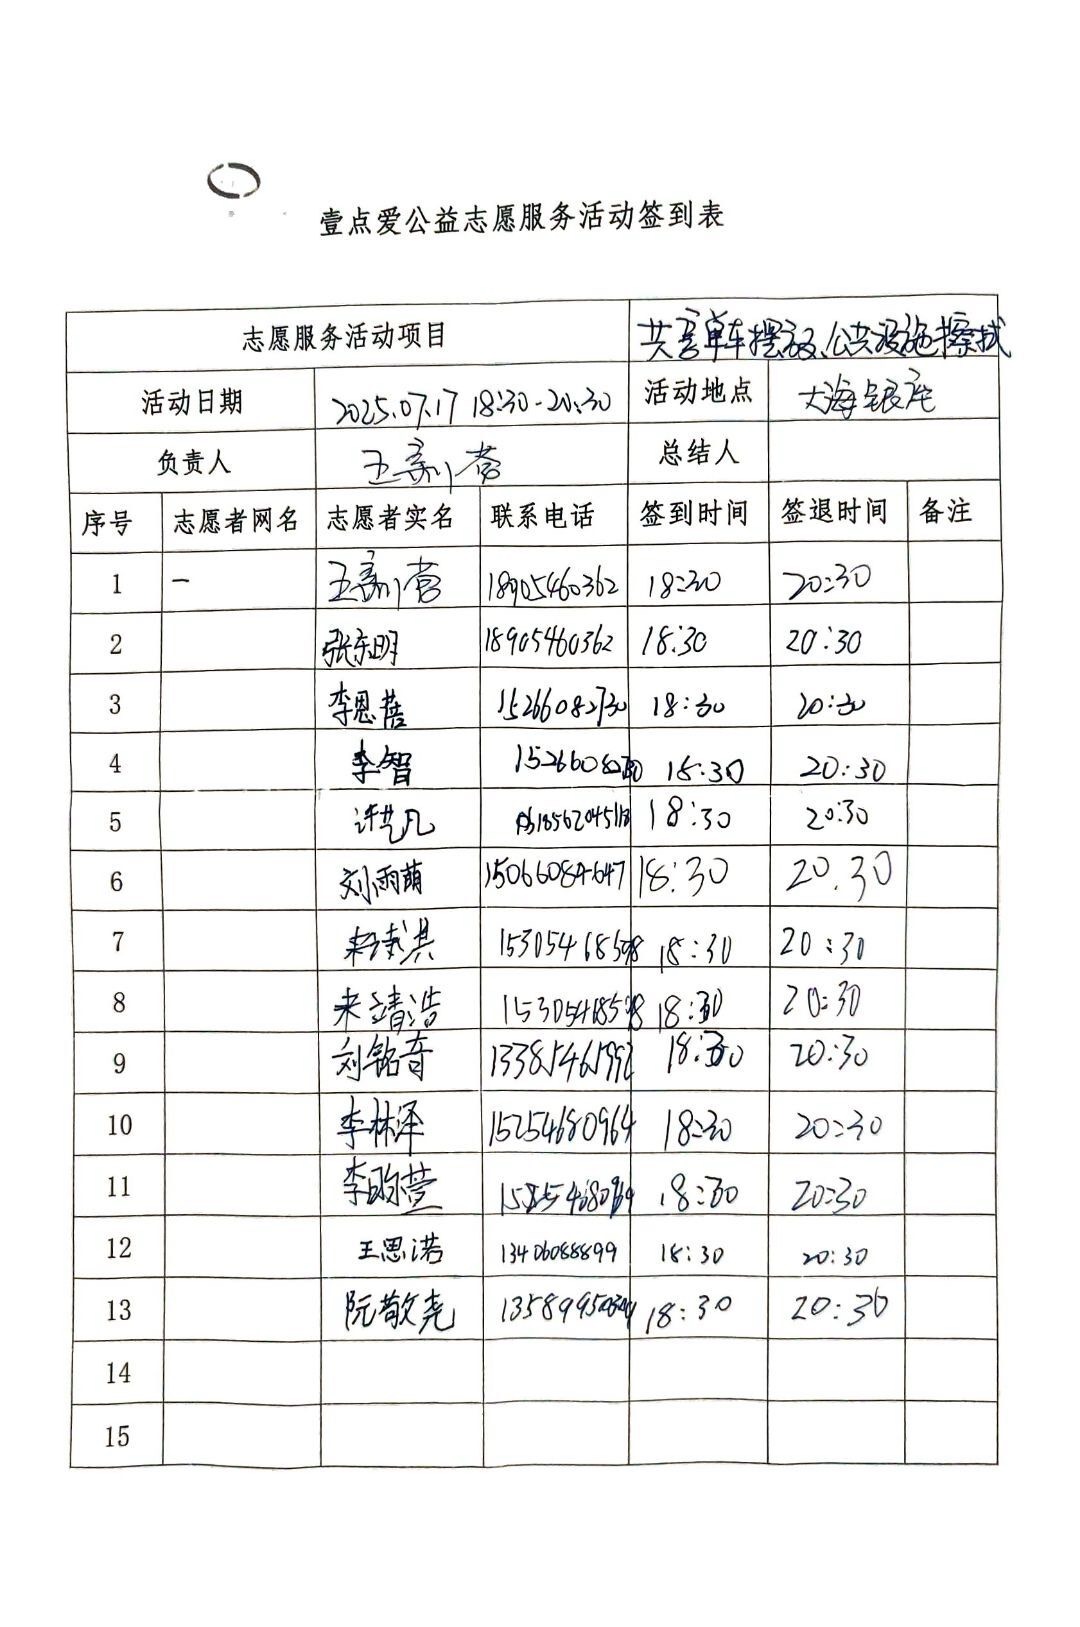 壹点爱公益志愿服务活动签到表
志愿服务活动项目 共享单车摆放、公共设施擦拭
活动日期 2025.07.17 18:30-20:30 活动地点 大海银座
负责人 总结人
序号 志愿者网名 志愿者实名 联系电话 签到时间 签退时间 备注
1 一 18905460362 18:30 20:30
2 张东明 18905460362 18:30 20:30
3 李恩蓓 15266082730 18:30 20:30
4 李智 18:30 20:30
5 许艺凡 18:30 20:30
6 刘雨萌 15066084647 18:30 20.30
7 18:30 20:30
8 来靖浩 18:30 20:30
9 刘铭音 18:30 20:30
10 李林泽 15254680964 18:30 20:30
11 18:30 20:30
12 王思诺 13406088899 18:30 20:30
13 阮敬尧 18:30 20:30
14
15